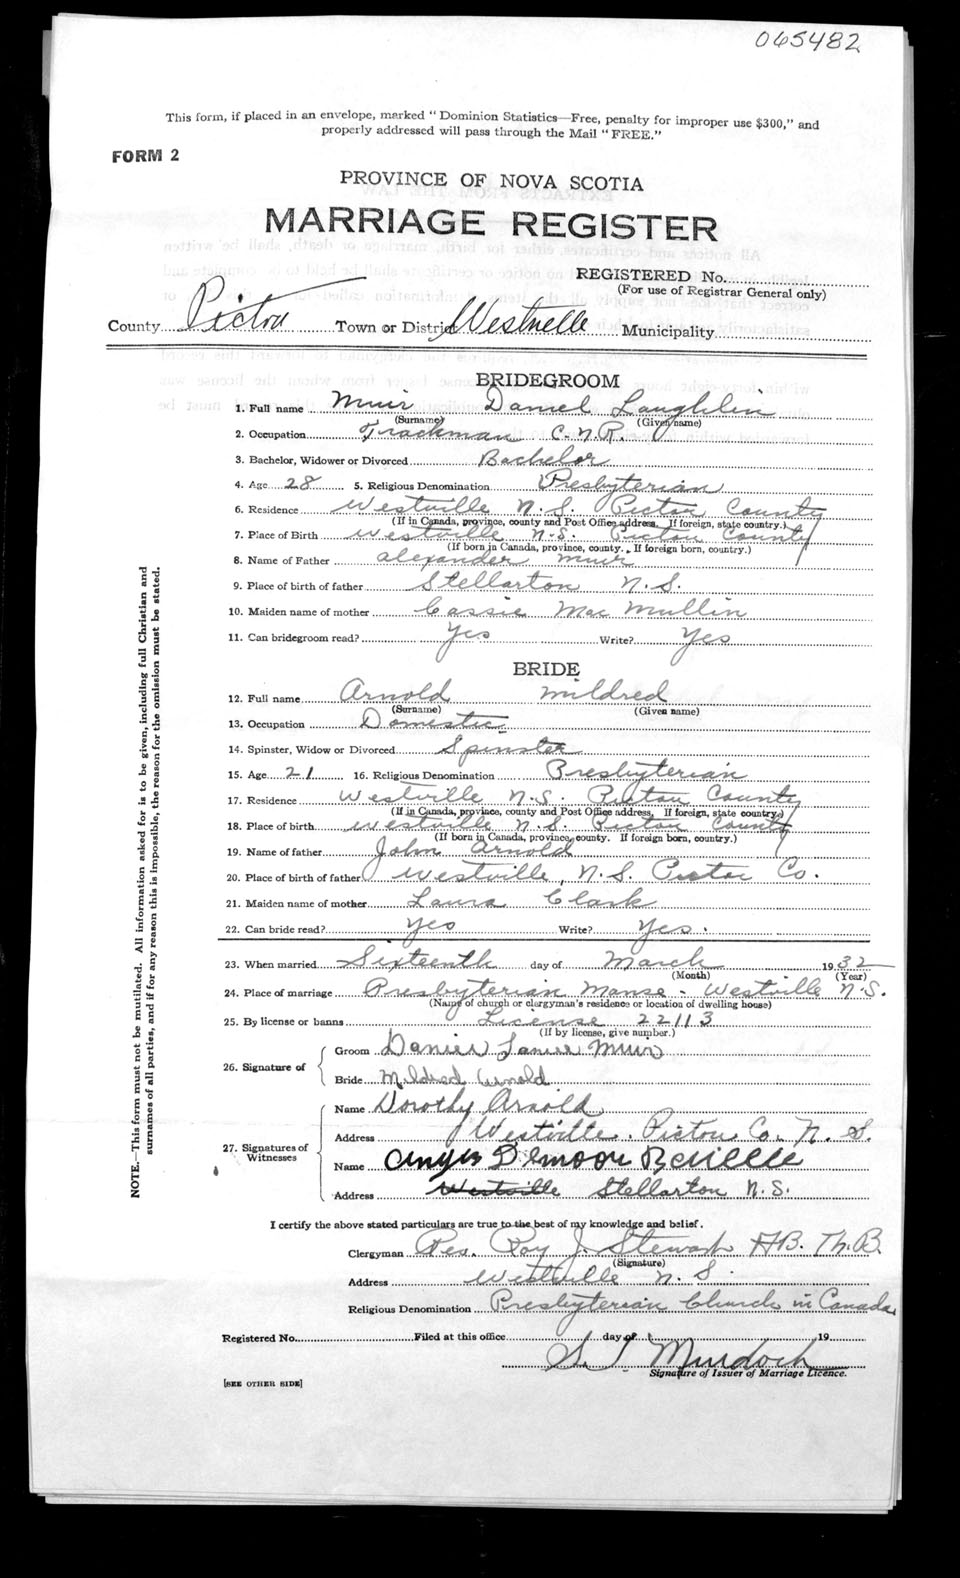 065482
This form, if placed in an envelope, marked "Dominion Statistics—Free, penalty for improper use $300," and
properly addressed will pass through the Mail "FREE."
FORM 2
PROVINCE OF NOVA SCOTIA
MARRIAGE REGISTER
REGISTERED No.
(For use of Registrar General only)
County Pictou Town or District Westville Municipality
BRIDEGROOM
1. Full name Muir Daniel Laughlin
(Surname) (Given name)
2. Occupation Trackman C.N.R.
3. Bachelor, Widower or Divorced Bachelor
4. Age 28 5. Religious Denomination Presbyterian
6. Residence Westville N.S. Pictou County
(If in Canada, province, county and Post Office address. If foreign, state country.)
7. Place of Birth Westville N.S. Pictou County
(If born in Canada, province, county. If foreign born, country.)
8. Name of Father Alexander Muir
9. Place of birth of father Stellarton N.S.
10. Maiden name of mother Cassie Mac Mullin
11. Can bridegroom read? Yes Write? Yes
BRIDE
12. Full name Arnold Mildred
(Surname) (Given name)
13. Occupation Domestic
14. Spinster, Widow or Divorced Spinster
15. Age 21 16. Religious Denomination Presbyterian
17. Residence Westville N.S. Pictou County
(If in Canada, province, county and Post Office address, If foreign, state country.)
18. Place of birth Westville N.S. Pictou County
(If born in Canada, province, county. If foreign born, country.)
19. Name of father John Arnold
20. Place of birth of father Westville, N.S. Pictou Co.
21. Maiden name of mother Laura Clark
22. Can bride read? Yes Write? Yes.
23. When married Sixteenth day of March 1932
(Month) (Year)
24. Place of marriage Presbyterian Manse - Westville N.S.
(Name of church or clergyman's residence or location of dwelling house)
25. By license or banns License 22113
(If by license, give number.)
26. Signature of
Groom Daniel Muir
Bride Mildred Arnold
27. Signatures of Witnesses
Name Dorothy Arnold
Address Westville. Pictou Co. N. S.
Name
Address Westville Stellarton N.S.
I certify the above stated particulars are true to the best of my knowledge and belief.
Clergyman Rev. Roy J. Stewart A.B. Th.B.
(Signature)
Address Westville N.S.
Religious Denomination Presbyterian Church in Canada.
Registered No. Filed at this office day of 19
Murdoch
Signature of Issuer of Marriage Licence.
[SEE OTHER SIDE]
NOTE.—This form must not be mutilated. All information asked for is to be given, including full Christian and
surnames of all parties, and if for any reason this is impossible, the reason for the omission must be stated.